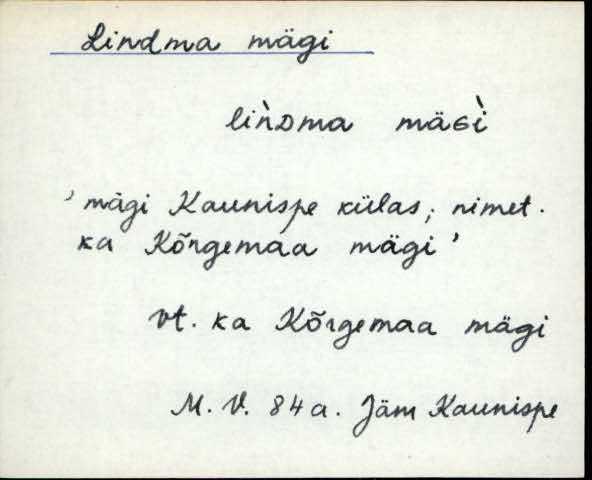 Lindma mägi
lìnᴅma mäɢì
' mägi Kaunispe külas; nimet.
ka Kõrgemaa mägi '
vt. ka Kõrgemaa mägi
M. V. 84 a. Jäm Kaunispe